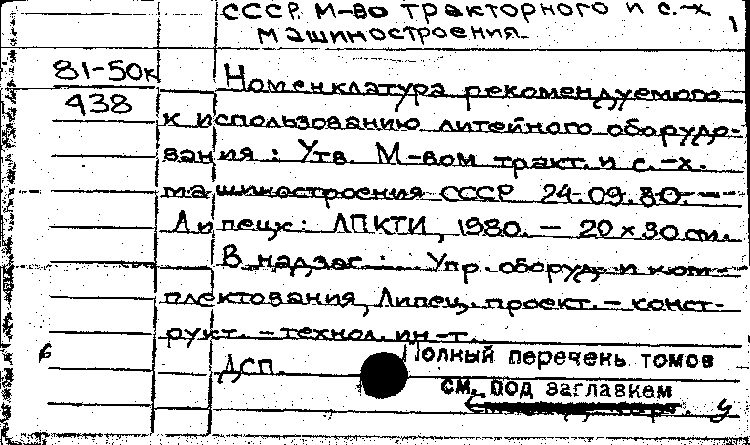 СССР. М-во тракторного и с.-х
машиностроения.
1
81-50к
438
Номенклатура рекомендуемого
к использованию литейного оборудо-
вания: Утв. М-вом тракт. и с.-х.
машиностроения СССР 24.09.80. --
Липецк: ЛПКТИ, 1980. - 20 x 30 см.
В надзаг.: Упр. оборуд. и ком-
плектования, Липец. проект.-конст-
рукт.-технол. ин-т.
б
ДСП.
Полный перечень томов
см. под заглавием
у